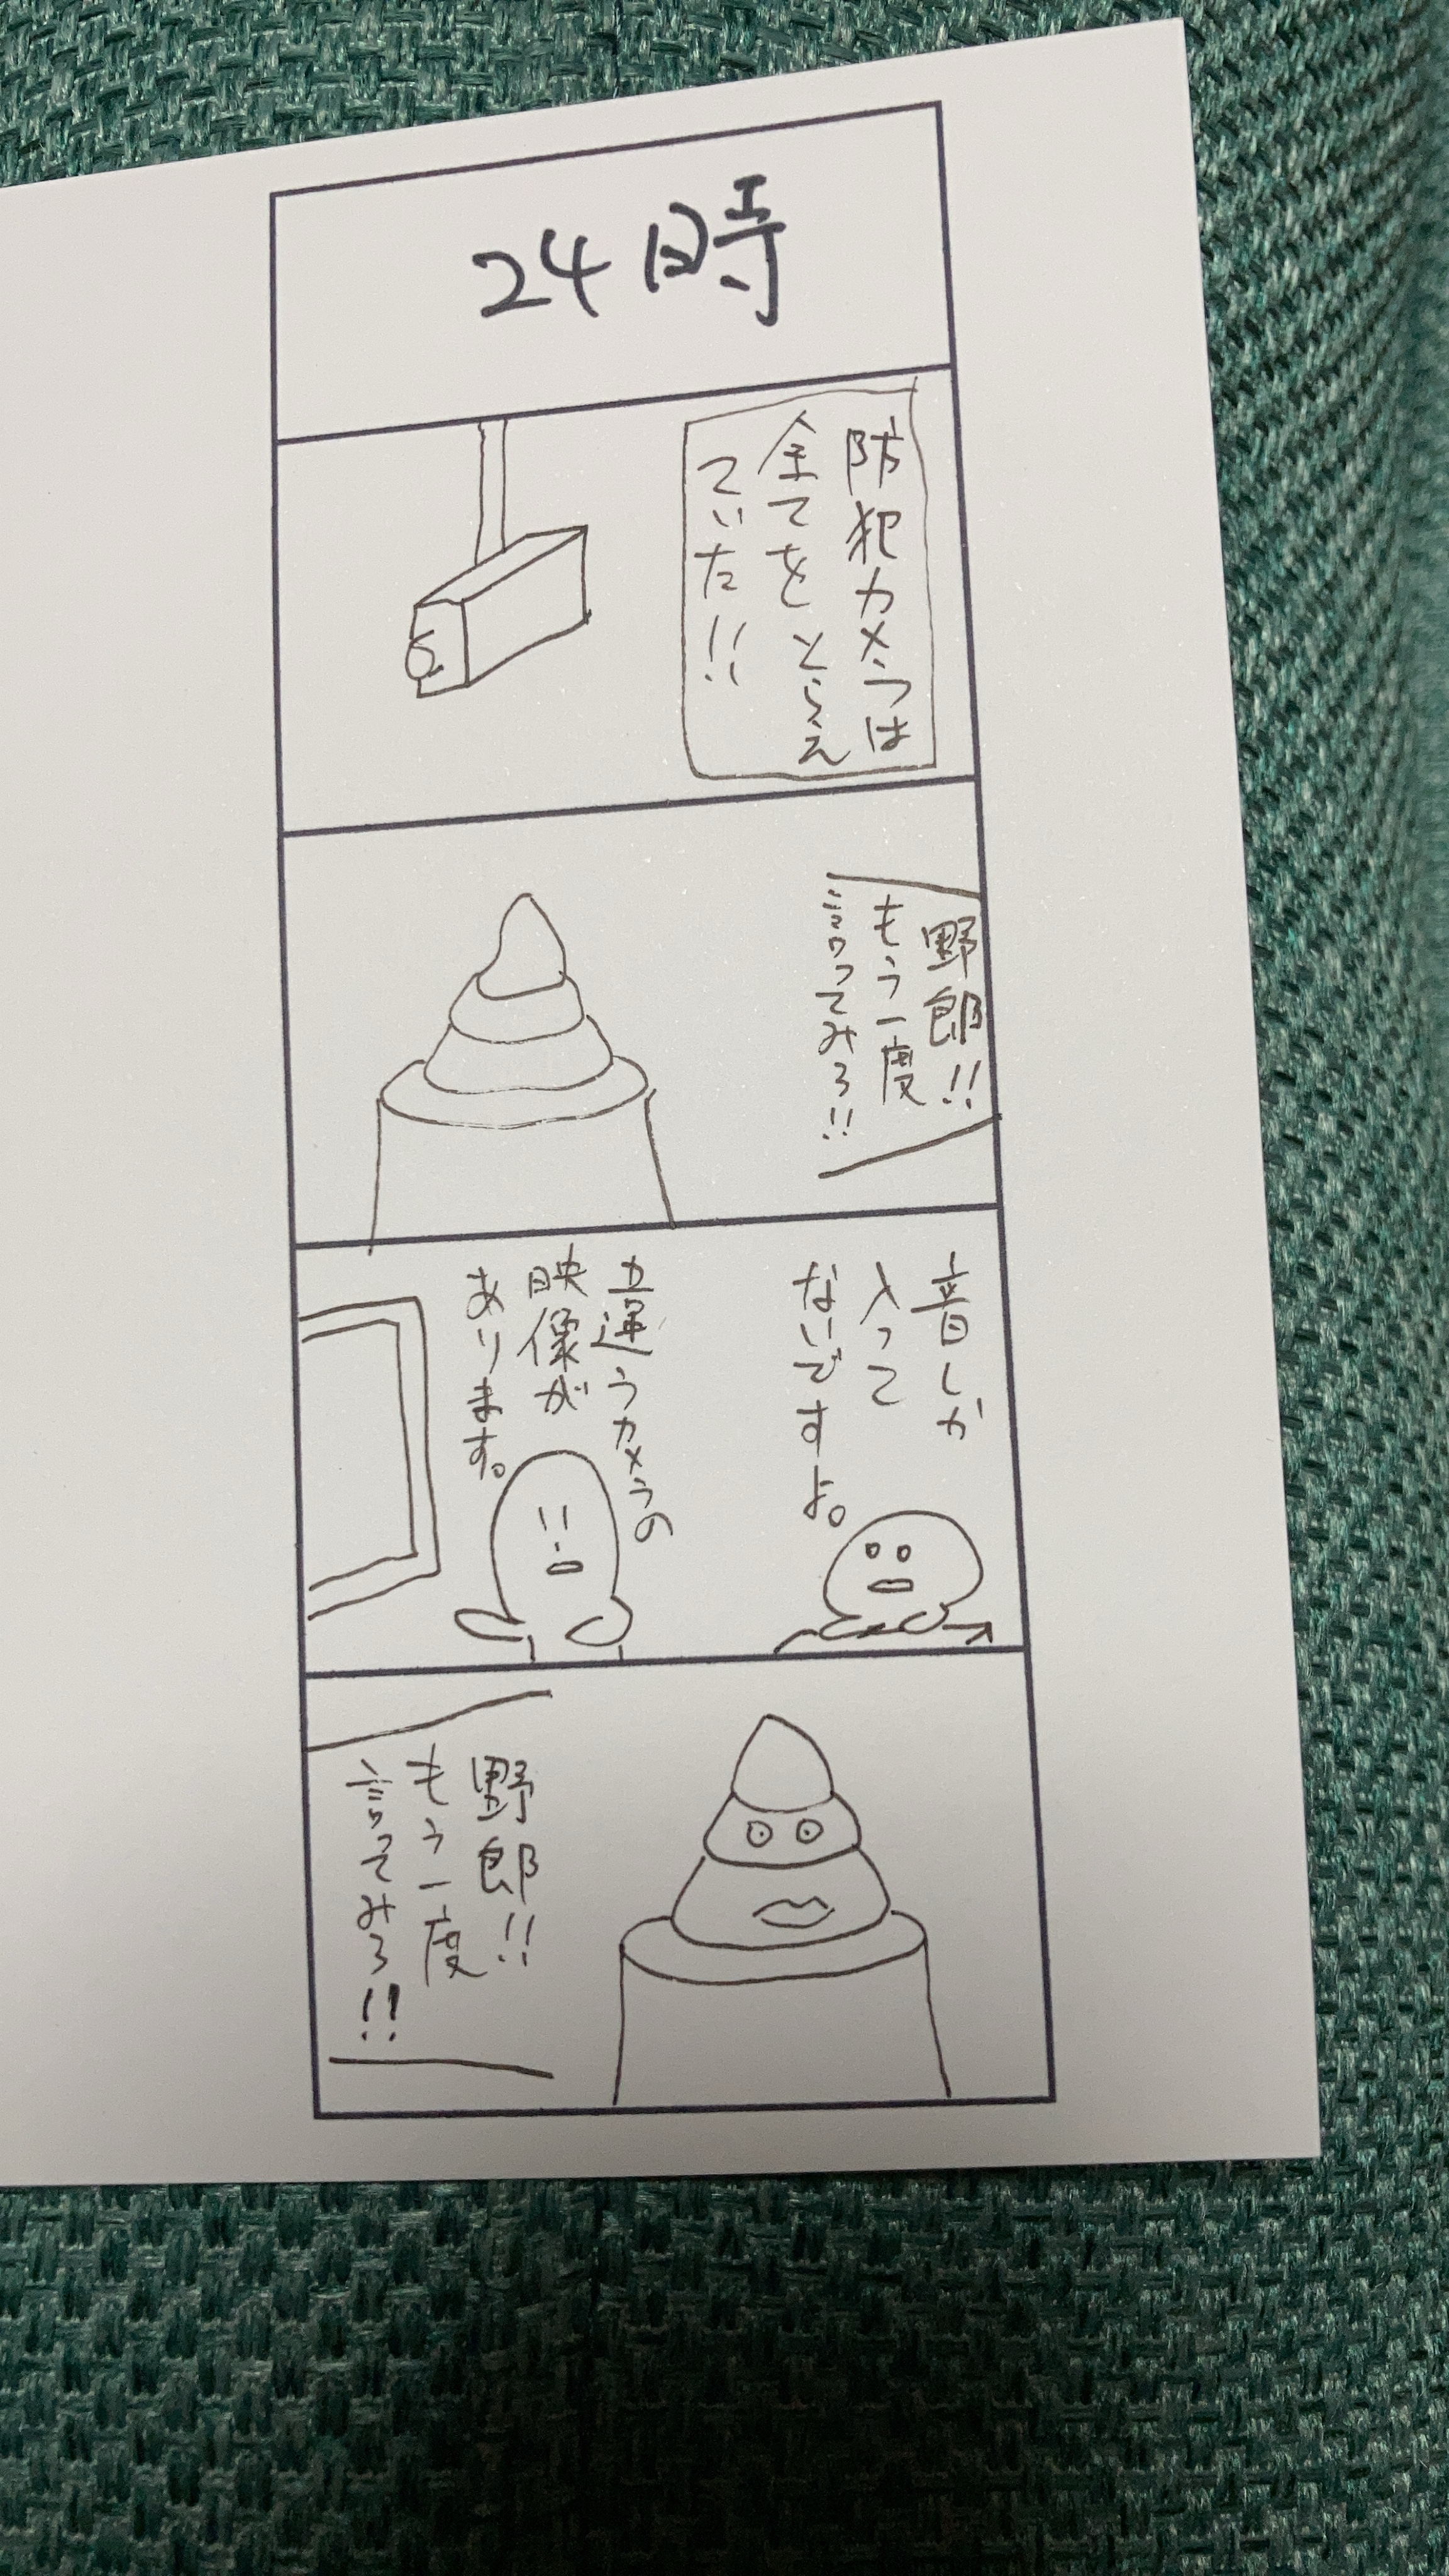 24時
防犯カメラは
全てをとらえ
ていた!!
野郎!!
もう一度
言ってみろ!!
音しか
入って
ないですよ。
違うカメラの
映像が
あります。
野郎!!
もう一度
言ってみろ!!